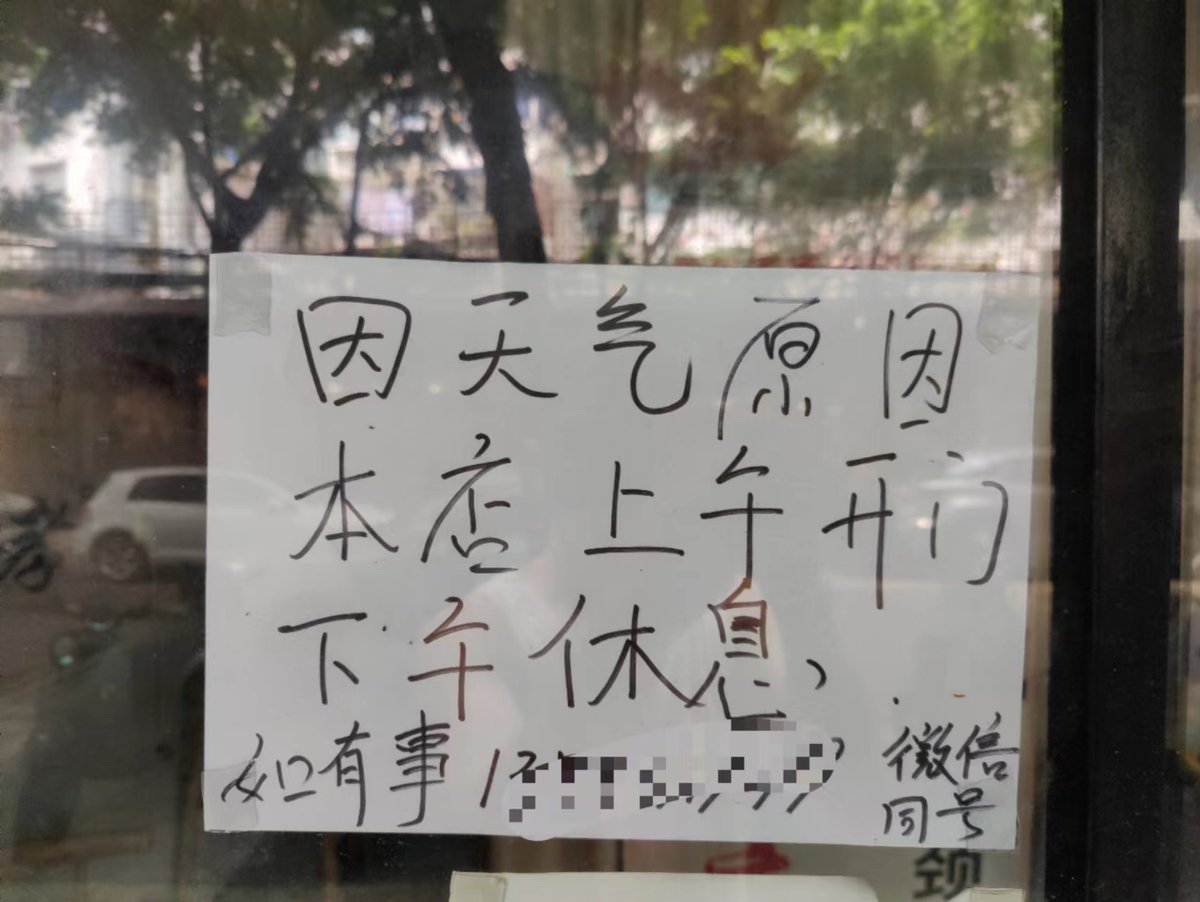 因天气原因
本店上午开门
下午休息
如有事
微信
同号
颈